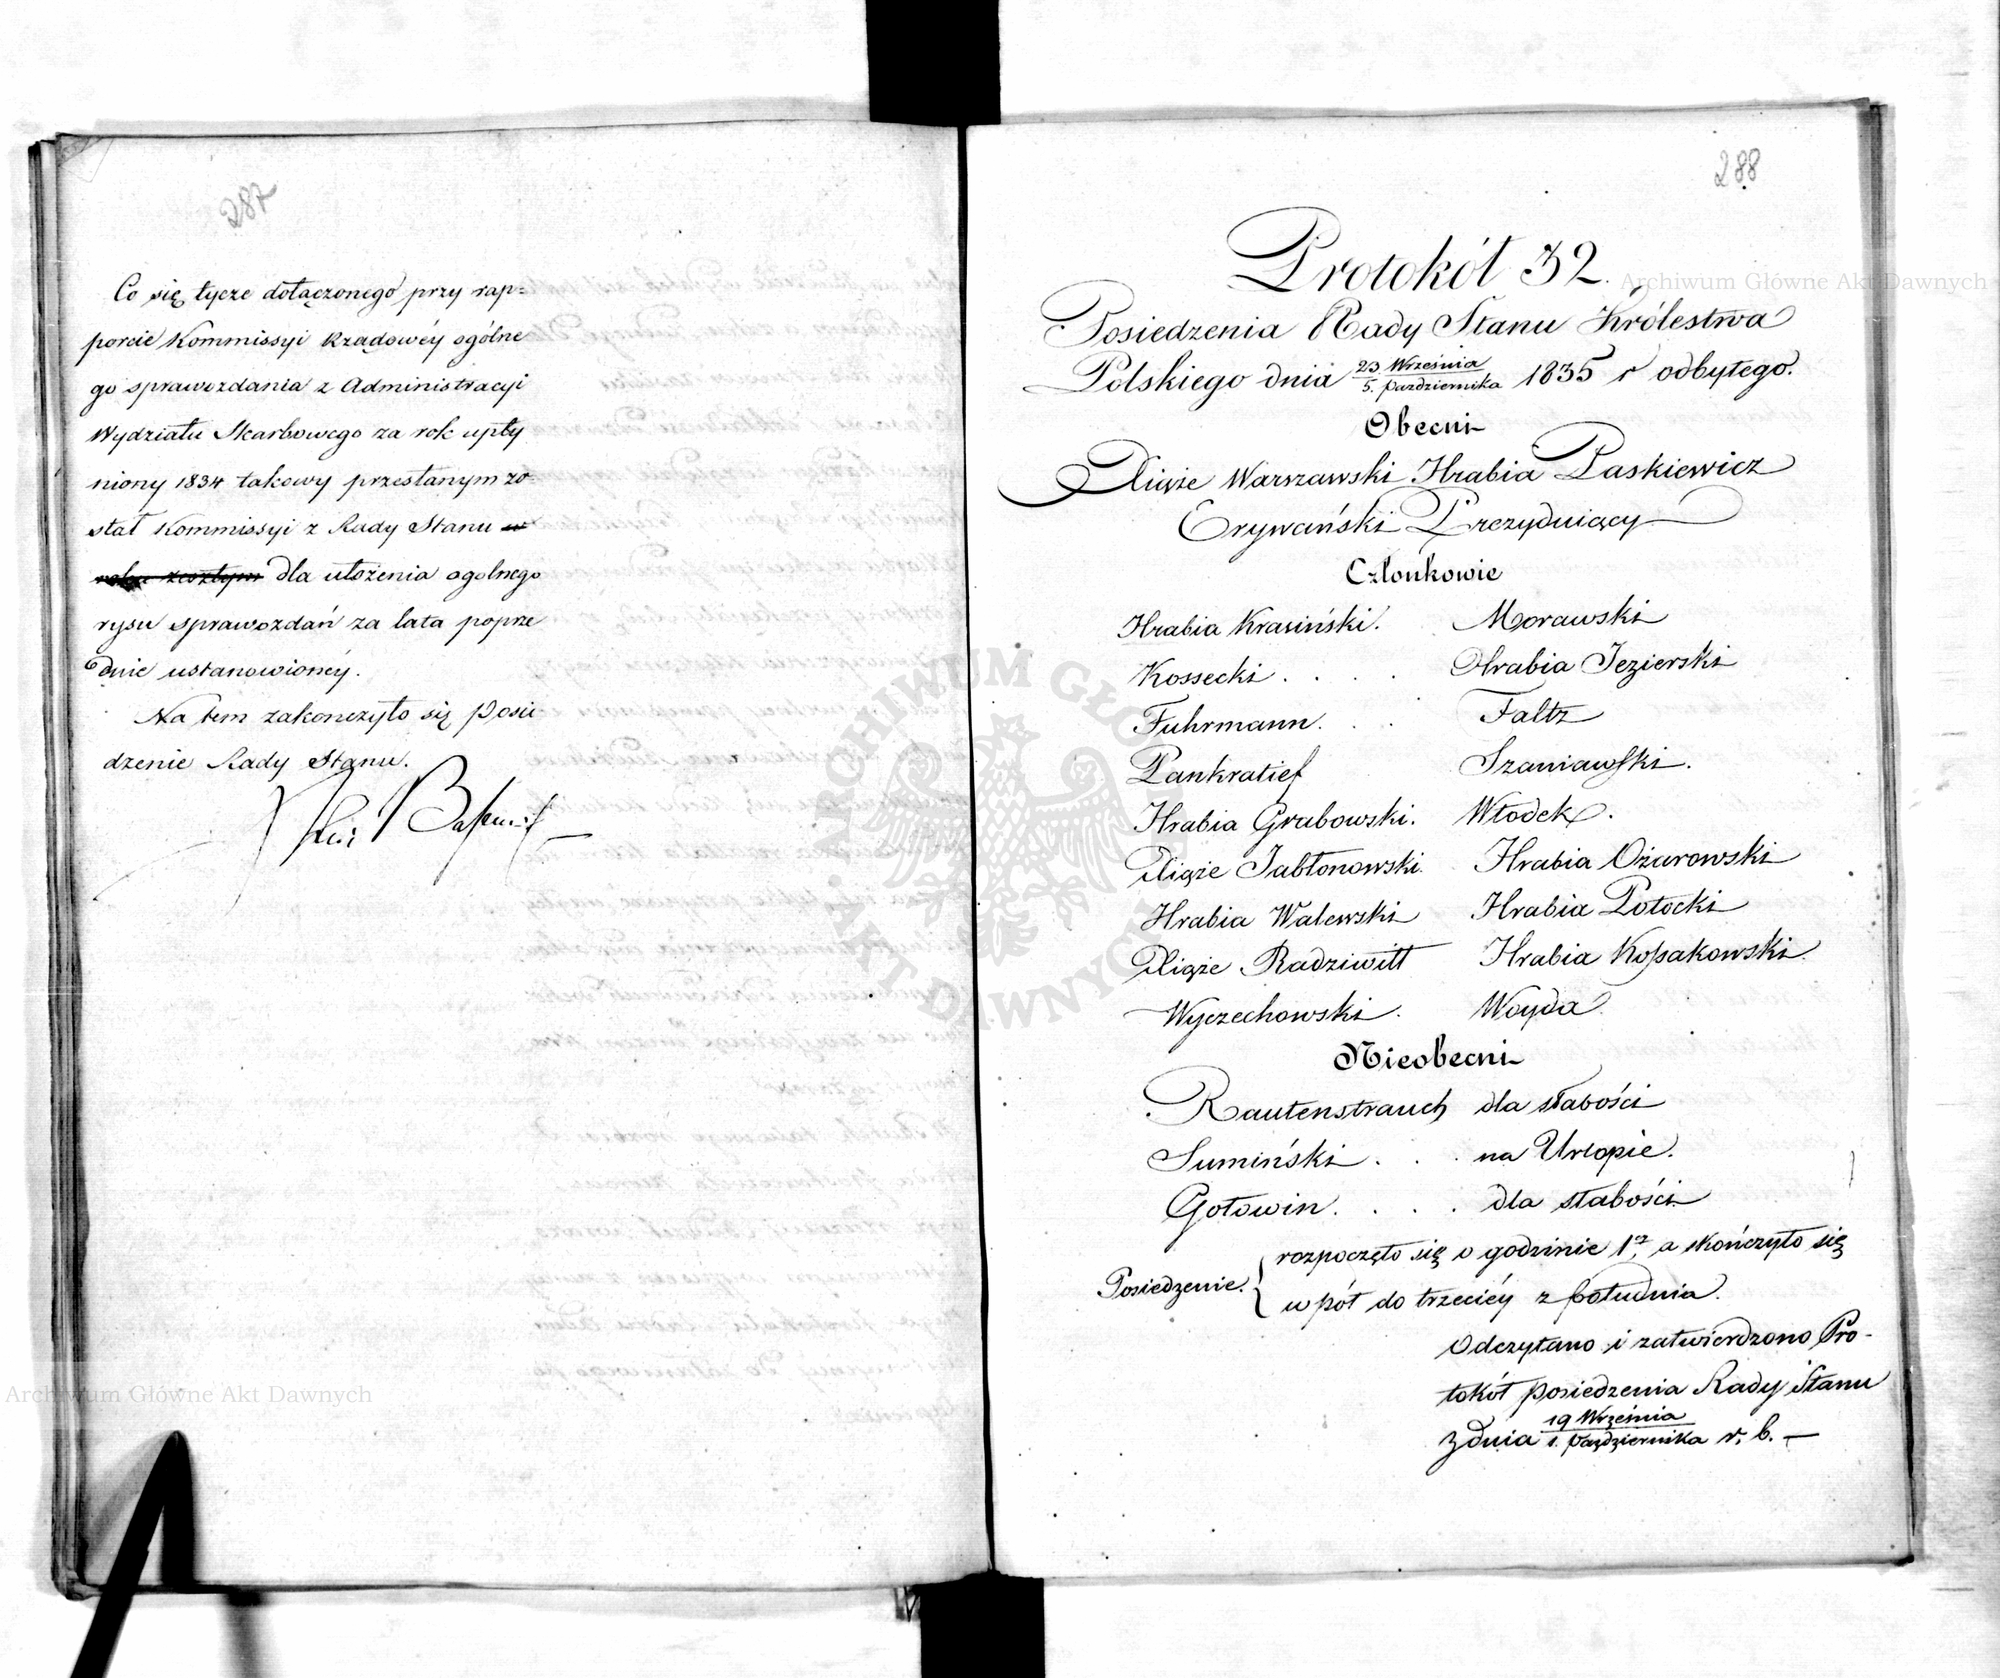 287
Co się tycze dołączonego przy rap=
porcie Kommissyi Rządowéy ogólne
go sprawozdania z Administracyi
Wydziału Skarbowego za rok upły
niony 1834 takowy przesłanym zo=
stał Kommissyi z Rady Stanu w
roku zeszłym dla ułożenia ogolnego
rysu sprawozdań za lata poprze
dnie ustanowionéy.
Na tem zakonczyło się Posie
dzenie Rady Stanu.
288
Protokół 32.
Posiedzenia Rady Stanu Królestwa
Polskiego dnia 23 Września / 5. Października 1835 r odbytego.
Obecni
Xiąże Warszawski Hrabia Paskiewicz
Erywański Prezyduiący
Członkowie
Hrabia Krasiński. Morawski
Kossecki . . . . Hrabia Jezierski
Fuhrmann. . . Faltz
Pankratief Szaniawski.
Hrabia Grabowski. Włodek.
Xiąże Jabłonowski. Hrabia Ożarowski
Hrabia Walewski Hrabia Potocki
Xiąże Radziwiłł Hrabia Kossakowski.
Wyczechowski. Woyda.
Nieobecni
Rautenstrauch dla słabości
Sumiński . . . na Urlopie.
Gołowin. . . . dla słabości.
Posiedzenie. { rozpoczęło się o godzinie 1éy a skończyło się
w pół do trzeciéy z południa.
Odczytano i zatwierdzono Pro-
tokół posiedzenia Rady Stanu
z dnia 19 Września / 1. Października r. b. —
Archiwum Główne Akt Dawnych
Archiwum Główne Akt Dawnych
ARCHIWUM GŁÓWNE AKT DAWNYCH